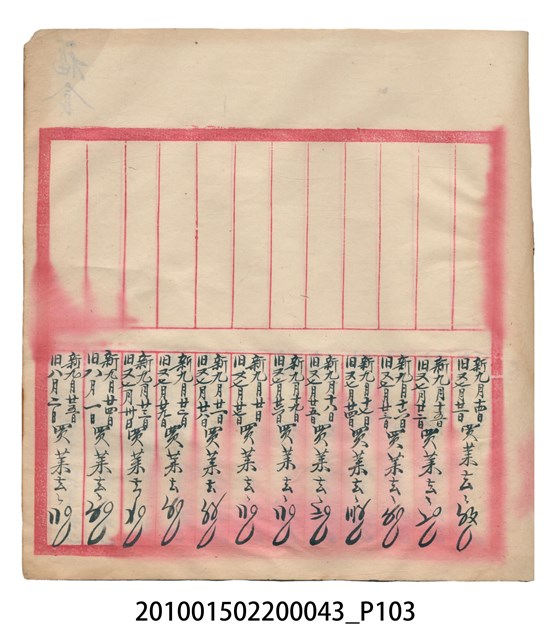 新九月十四日
旧又七月廿一日
買菜去
新九月十五日
旧又七月廿二日
買菜去
新九月十六日
旧又七月廿三日
買菜去
新九月十七日
旧又七月廿四日
買菜去
新九月十八日
旧又七月廿五日
買菜去
新九月十九日
旧又七月廿六日
買菜去
新九月廿日
旧又七月廿七日
買菜去
新九月廿一日
旧又七月廿八日
買菜去
新九月廿二日
旧又七月廿九日
買菜去
新九月廿三日
旧又七月卅日
買菜去
新九月廿四日
旧八月一日
買菜去
新九月廿五日
旧八月二日
買菜去
201001502200043_P103